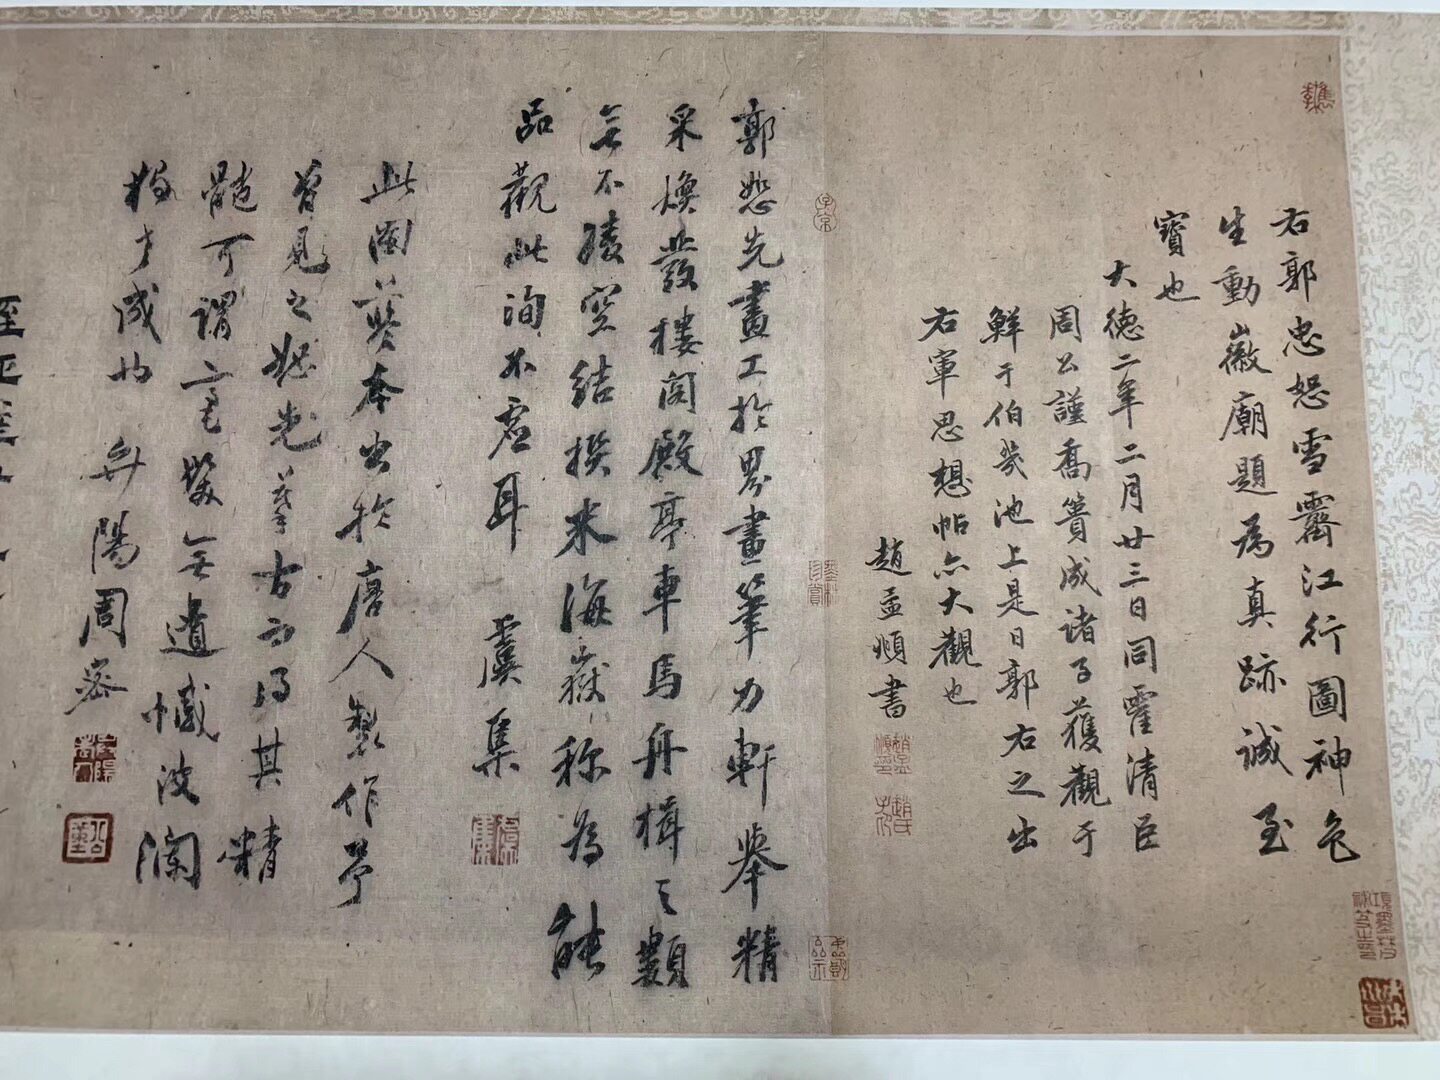 右郭忠恕雪霽江行圖神色
生動徽廟題為真跡誠至
寶也
大德二年二月廿三日同霍清臣
周公謹喬簣成諸子獲觀于
鮮于伯幾池上是日郭右之出
右軍思想帖亦大觀也
趙孟頫書
郭恕先畫工於界畫筆力軒舉精
采煥發樓閣殿亭車馬舟楫之類
無不凌空結撰米海嶽称為能
品觀此洵不虛耳 虞集
此圖蓋本出於唐人製作予
曾見之恕先摹古而得其精
髓可謂毫髮無遺憾波瀾
獨老成也 弁陽周密